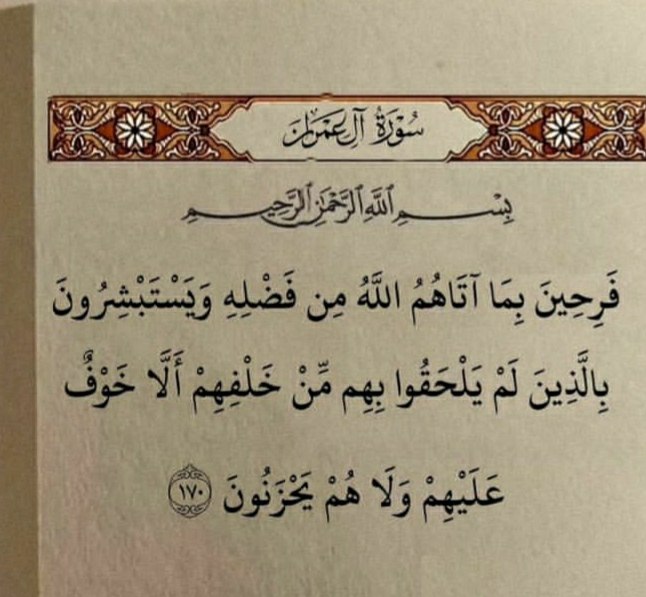 سُورَةُ آلِ عِمْرَانَ
بِسْمِ ٱللَّهِ ٱلرَّحْمَٰنِ ٱلرَّحِيمِ
فَرِحِينَ بِمَا آتَاهُمُ اللَّهُ مِن فَضْلِهِ وَيَسْتَبْشِرُونَ
بِالَّذِينَ لَمْ يَلْحَقُوا بِهِم مِّنْ خَلْفِهِمْ أَلَّا خَوْفٌ
عَلَيْهِمْ وَلَا هُمْ يَحْزَنُونَ ١٧٠